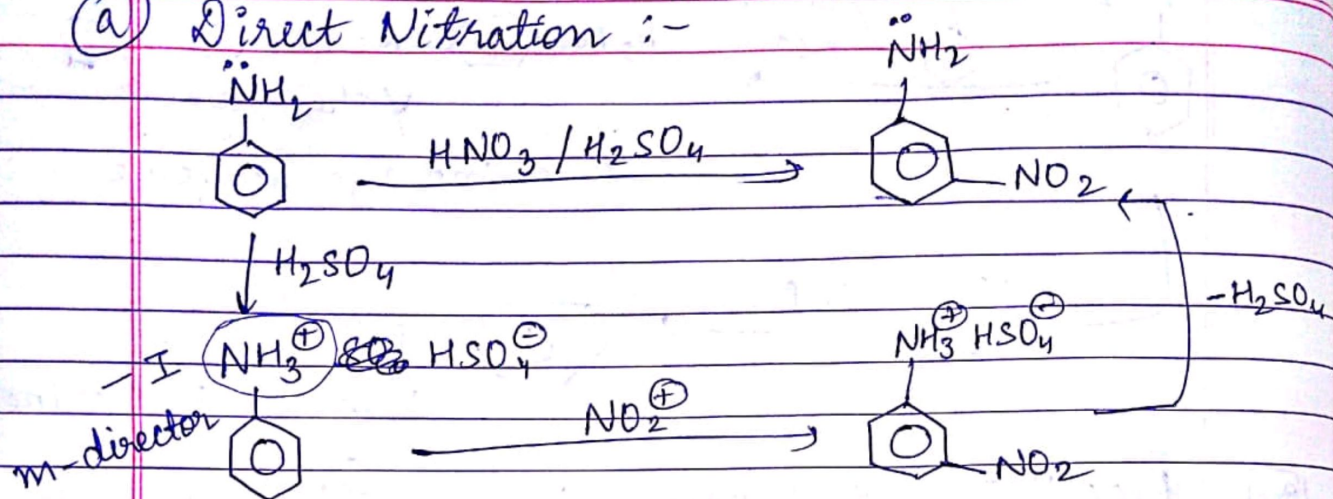 (a) Direct Nitration :-
NH2
NH2
HNO3 / H2SO4
NO2
H2SO4
-H2SO4
-I NH3⊕ HSO4⊖
NH3⊕ HSO4⊖
m-director
NO2⊕
NO2